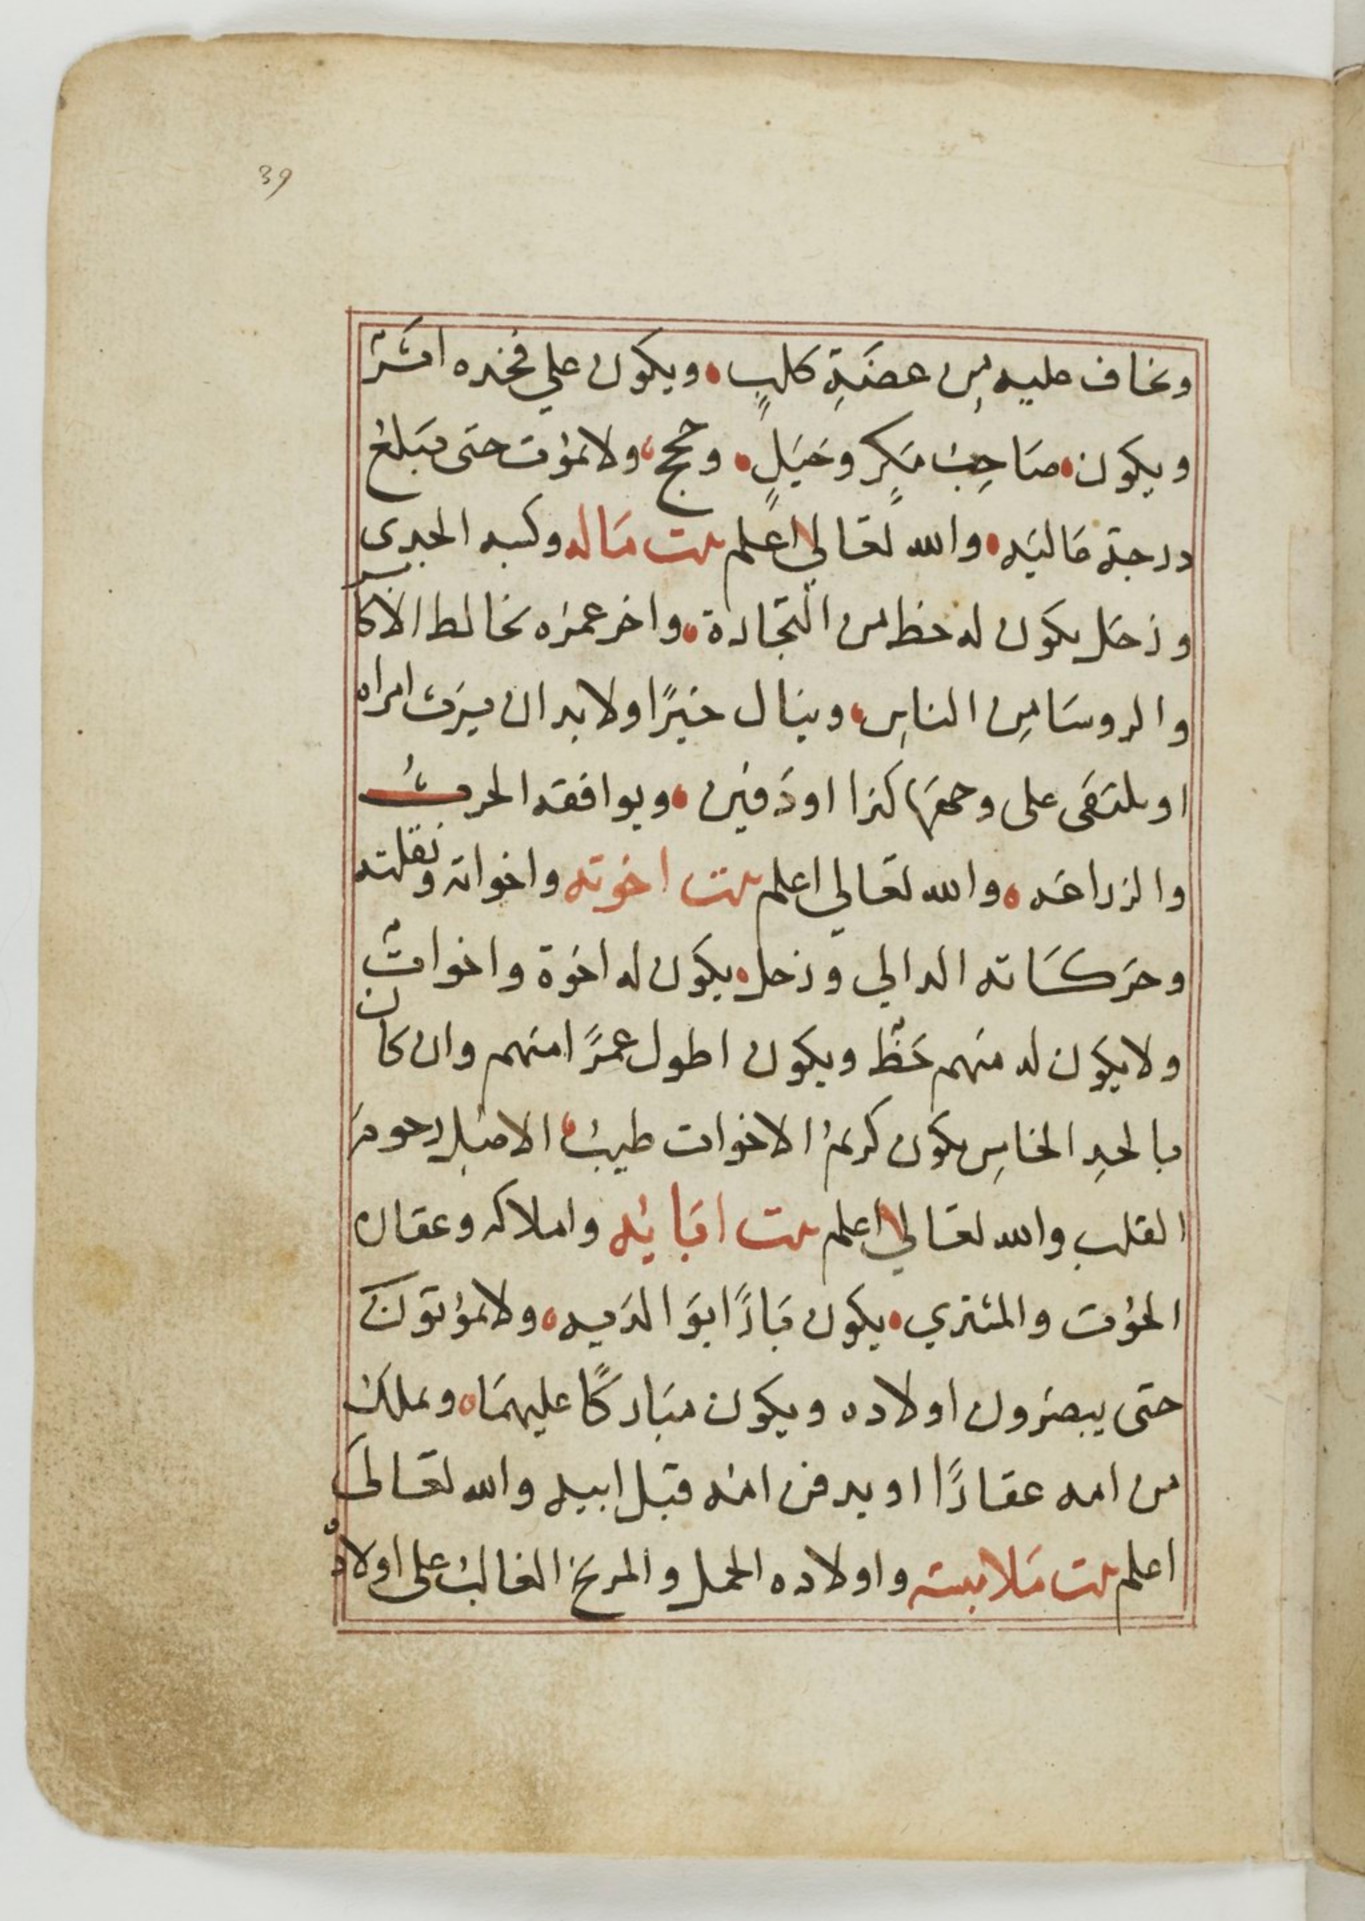 39
ونخاف عليه من عضة كلب • ويكون علي فخده اثر
ويكون • صاحب مكر وحيل • وحج • ولا يموت حتى يبلغ
درجة عاليه • والله تعالي اعلم بيت ماله وكسبه الجدى
وزحل يكون له حظ من التجارة • واخر عمره يخالط الاكابر
والروسا من الناس • وينال خيرًا ولا بد ان يرث امراه
او يلتقى على وجهها كنزا او دفين • ويوافقه الحرث
والزراعه • والله تعالي اعلم بيت اخوته واخواته ونقلته
وحركاته الدالي وزحل • يكون له اخوة واخوات
ولا يكون له منهم حظ ويكون اطول عمرًا منهم وان كان
بالحد الخامس يكون كريم الاخوات طيب • الاصل رحوم
القلب والله تعالي اعلم بيت ابائه واملاكه وعقاره
الحوت والمشتري • يكون بارًا بوالديه • ولا يموتون
حتى يبصرون اولاده ويكون مباركًا عليهما • ويملك
من امه عقارًا او يدفن امه قبل ابيه والله تعالى
اعلم بيت ملابسه واولاده الحمل والمريخ الغالب على اولاده